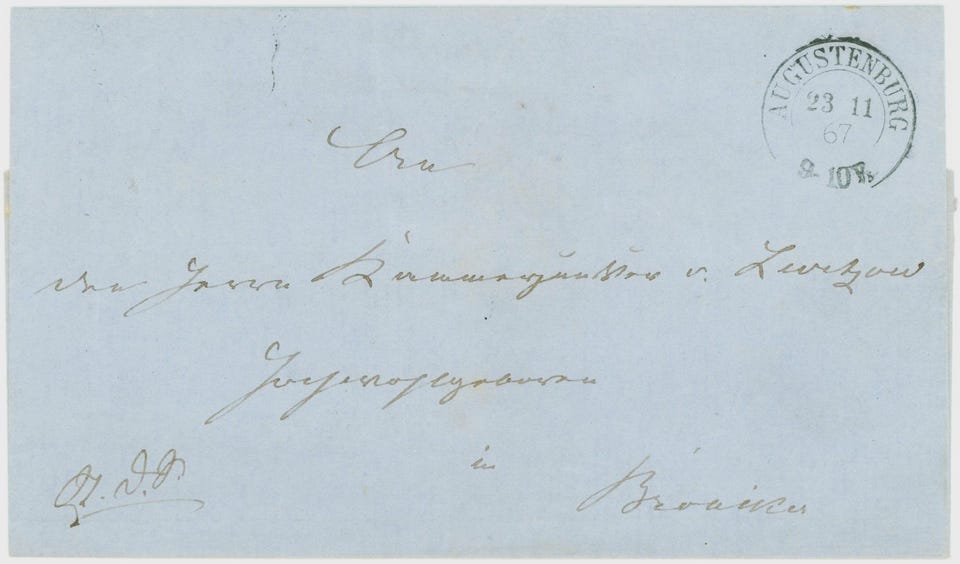 AUGUSTENBURG
23 11
67
9-10 V.
An
den Herrn Kammerjunker v.
Hochwohlgeboren
in
Broacker
St. D. S.